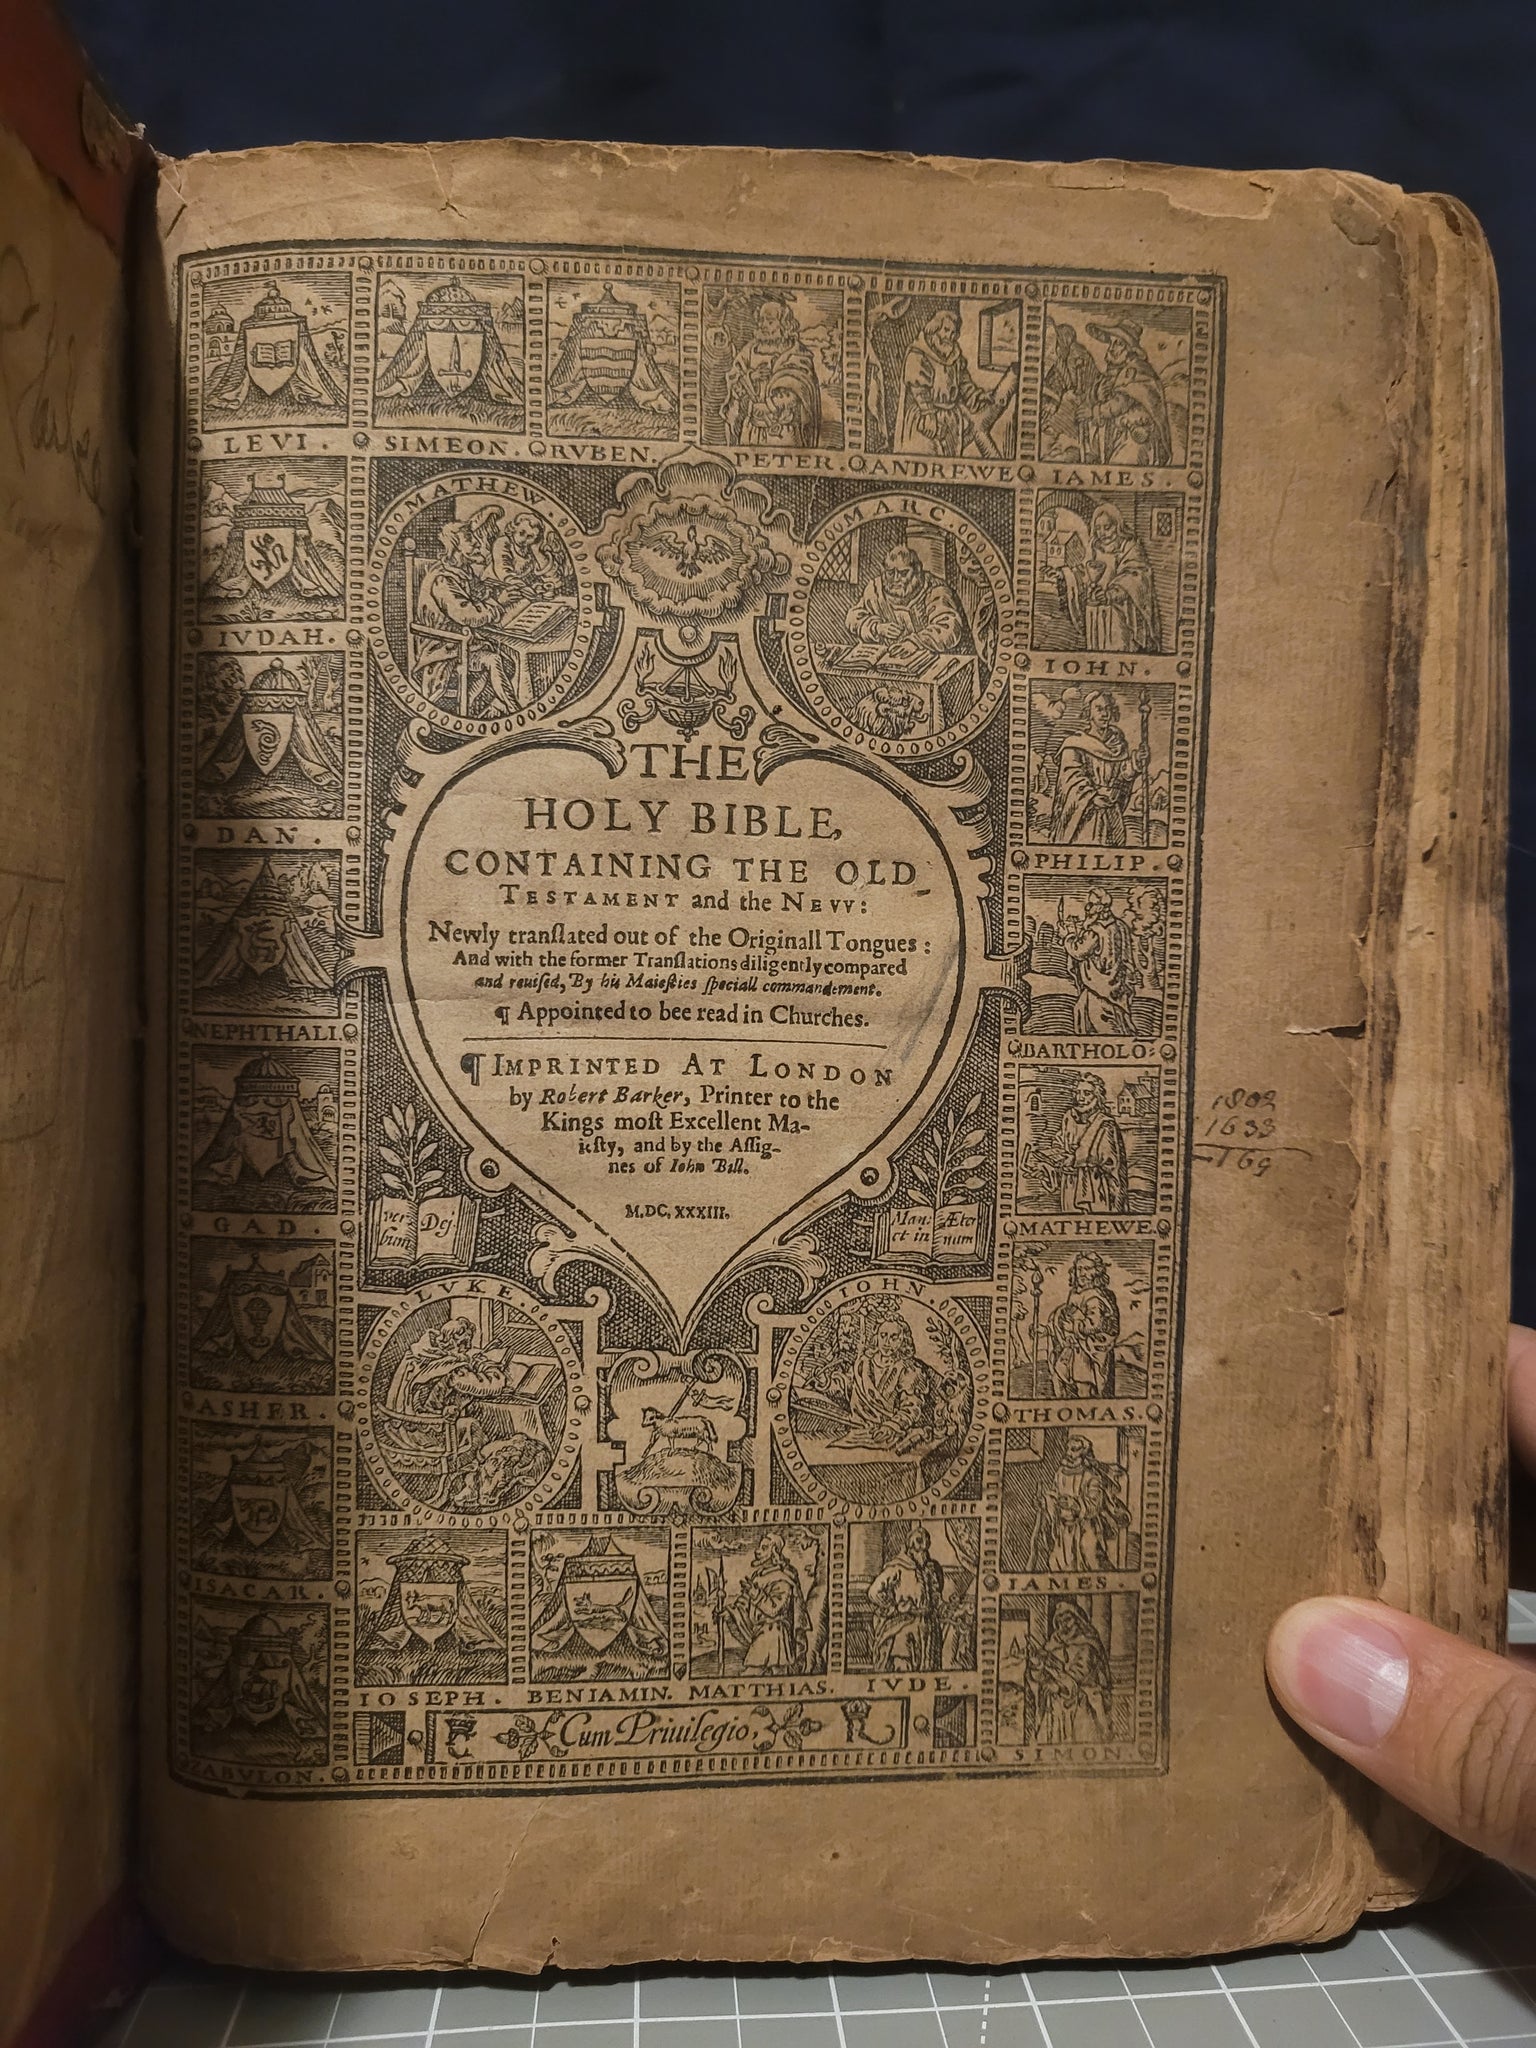 LEVI.
SIMEON.
RVBEN.
PETER.
ANDREWE
IAMES.
MATHEW.
MARC.
IVDAH.
IOHN.
DAN.
PHILIP.
NEPHTHALI.
BARTHOLO:
GAD.
MATHEWE
ASHER.
THOMAS.
ISACAR.
IAMES.
ZABVLON.
SIMON.
THE
HOLY BIBLE,
CONTAINING THE OLD
TESTAMENT and the NEVV:
Newly tranſlated out of the Originall Tongues:
And with the former Tranſlations diligently compared
and reuiſed, By his Maieſties ſpeciall commandement.
¶ Appointed to bee read in Churches.
¶ IMPRINTED AT LONDON
by Robert Barker, Printer to the
Kings moſt Excellent Ma-
ieſty, and by the Aſſig-
nes of Iohn Bill.
M.DC.XXXIII.
ver-
bum
Dej
Man:
et in
Æter
num
LVKE.
IOHN.
IOSEPH.
BENIAMIN.
MATTHIAS.
IVDE.
Cum Priuilegio,
1802
1633
169